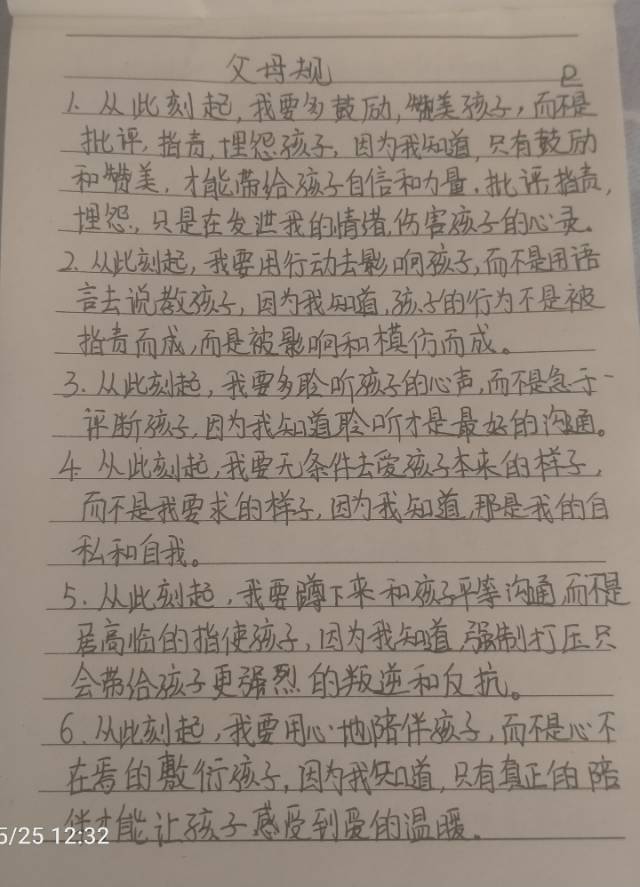 父母规
1. 从此刻起,我要多鼓励,赞美孩子,而不是
批评,指责,埋怨孩子,因为我知道,只有鼓励
和赞美,才能带给孩子自信和力量,批评指责,
埋怨,只是在发泄我的情绪,伤害孩子的心灵。
2. 从此刻起,我要用行动去影响孩子,而不是用语
言去说教孩子,因为我知道,孩子的行为不是被
指责而成,而是被影响和模仿而成。
3. 从此刻起,我要多聆听孩子的心声,而不是急于
评断孩子,因为我知道聆听才是最好的沟通。
4 从此刻起,我要无条件去爱孩子本来的样子,
而不是我要求的样子,因为我知道,那是我的自
私和自我。
5. 从此刻起,我要蹲下来和孩子平等沟通而不是
居高临的指使孩子,因为我知道,强制打压只
会带给孩子更强烈的叛逆和反抗。
6. 从此刻起,我要用心地陪伴孩子,而不是心不
在焉的敷衍孩子,因为我知道,只有真正的陪
伴才能让孩子感受到爱的温暖。
5/25 12:32